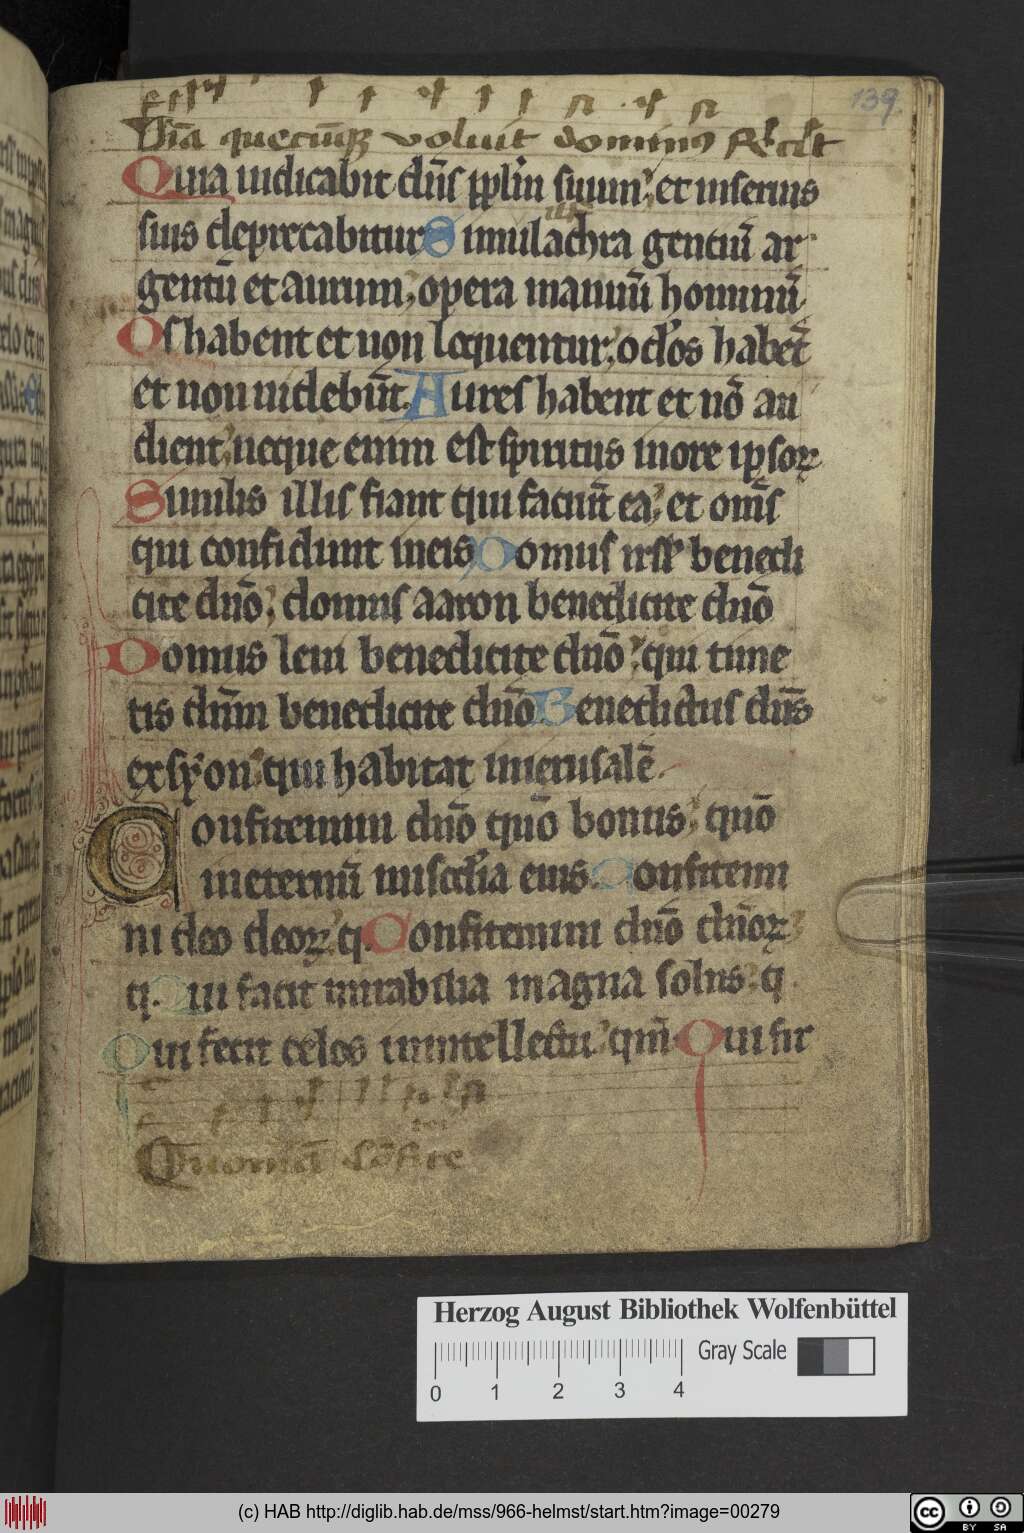 139
Oīa quecūqꝫ voluit dominus fecit
Quia iudicabit dn̄s pplm̄ suum; et in seruis
suis deprecabitur Simulachra gentiū ar
gentū et aurum; opera manuū hominū.
Os habent et non loquentur; oc̄los habēt
et non uidebūt. Aures habent et nō au
dient; neque enim est spiritus in ore ipsoꝝ
Similis illis fiant qui faciūt ea; et om̄s
qui confidunt in eis Domus isrl̄ benedi
cite dn̄o; domus aaron benedicite dn̄o
Domus leui benedicite dn̄o; qui time
tis dn̄m benedicite dn̄o Benedictus dn̄s
ex syon; qui habitat in ierusalē.
Confitemini dn̄o quō bonus; quō
in eternū misc̄dia eius. Confitemi
ni deo deoꝝ; q. Confitemini dn̄o dn̄oꝝ
q. Qui facit mirabilia magna solus; q.
Qui fecit celos in intellectu; qm̄ Qui fir
Quoniā cōfite
Herzog August Bibliothek Wolfenbüttel
Gray Scale
0 1 2 3 4
(c) HAB http://diglib.hab.de/mss/966-helmst/start.htm?image=00279
cc BY SA